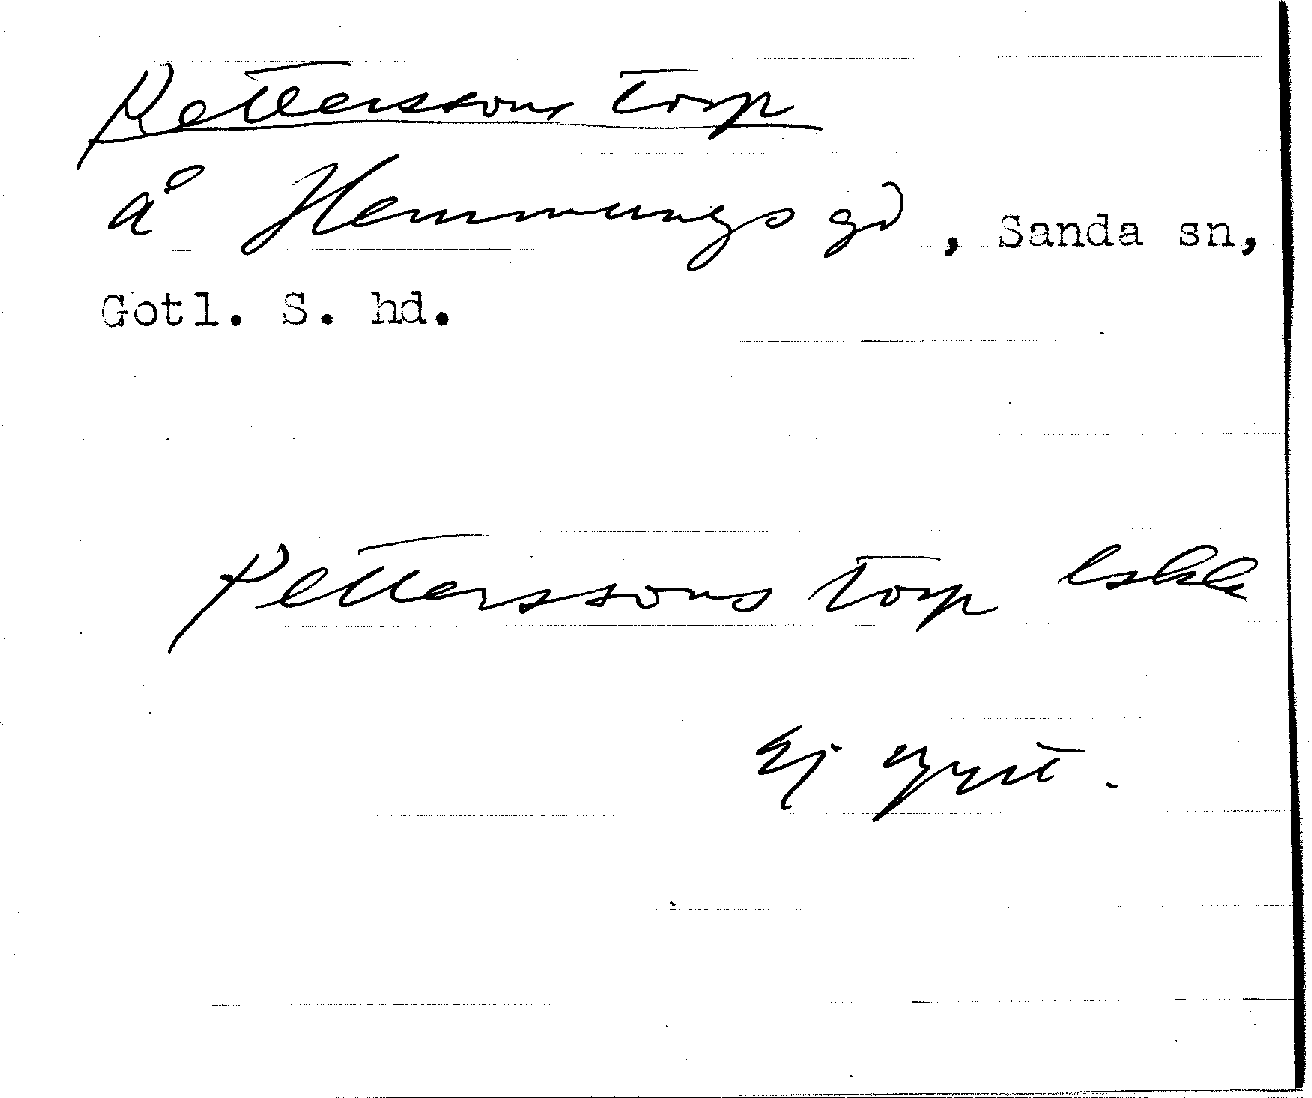 Petterssons torp
å Hemmungs gd, Sanda sn,
Gotl. S. hd.
Petterssons torp
Ej